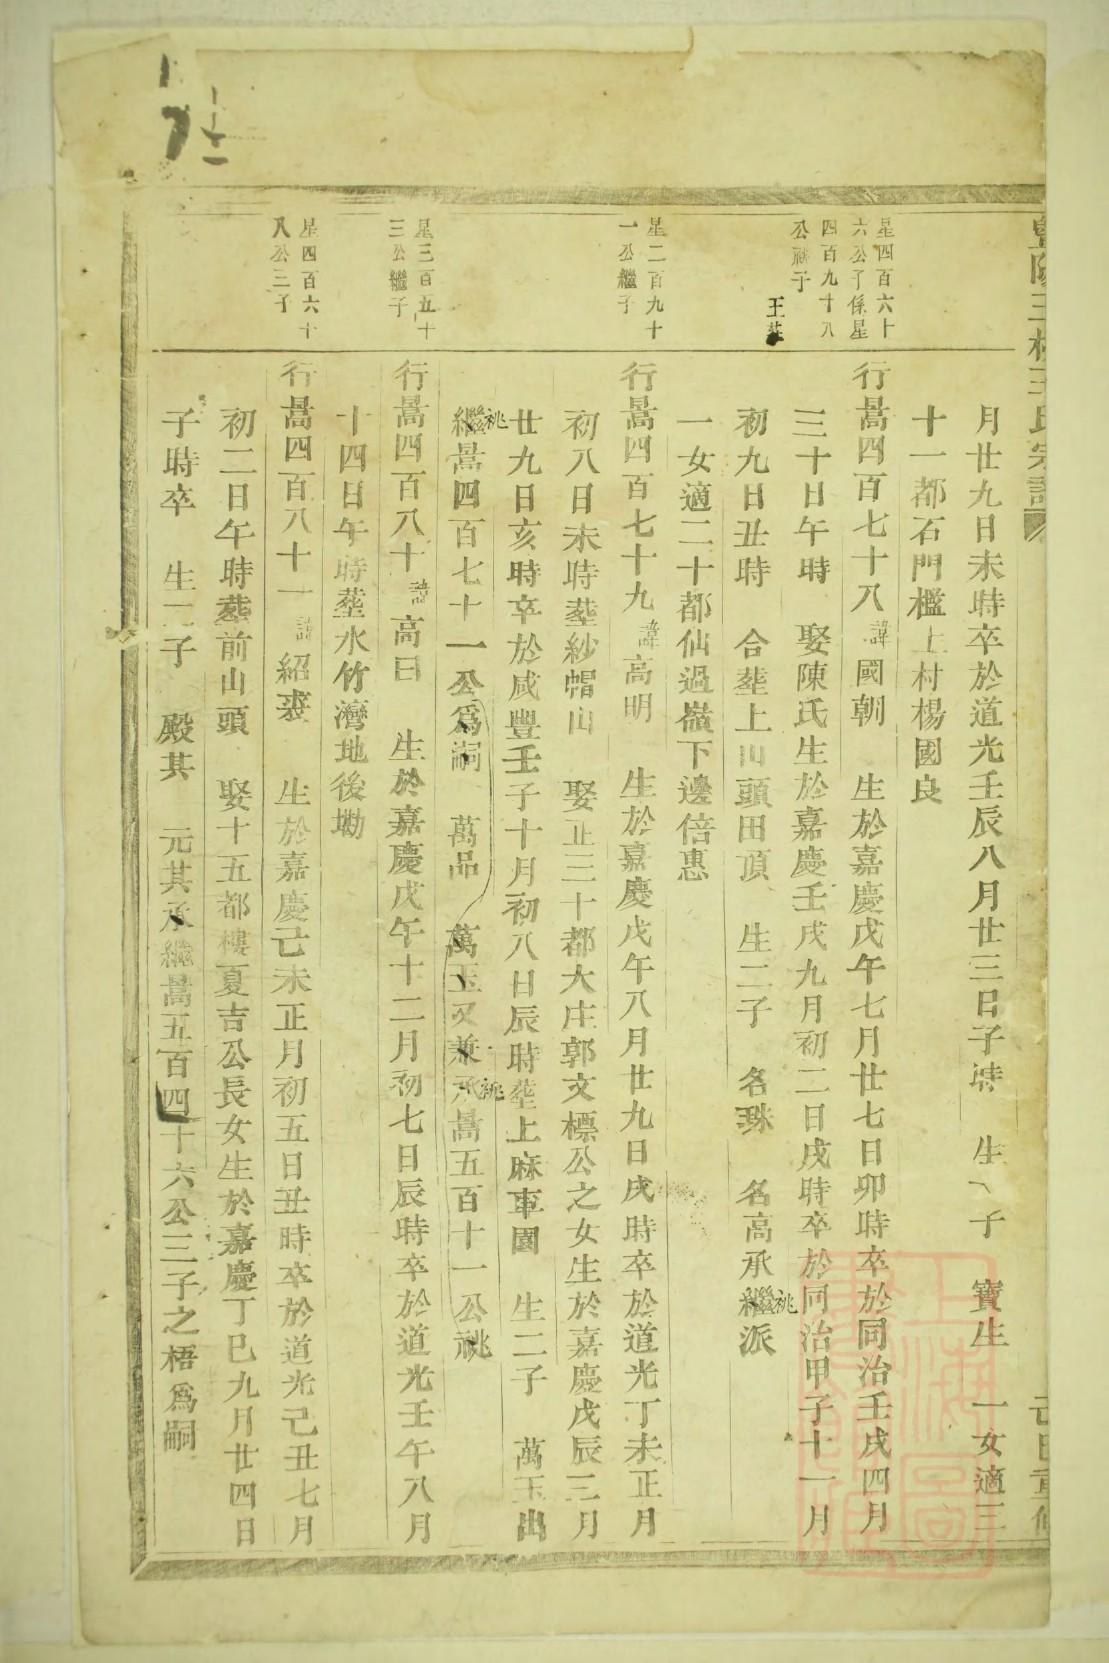 暨陽三楼王氏宗譜
己巳重修
月廿九日未時卒於道光壬辰八月廿三日子時　生一子　寶生　一女適三
十一都石門檻上村楊國良
星四百六十
六公子係星
四百九十八
公祧子
王莊
行暠四百七十八諱國朝　生於嘉慶戊午七月廿七日卯時卒於同治壬戌四月
三十日午時　娶陳氏生於嘉慶壬戌九月初二日戌時卒於同治甲子十一月
初九日丑時　合塟上山頭田頂　生二子　名珠　名高承繼祧派
一女適二十都仙過嶺下邊倍惠
星二百九十
一公繼子
行暠四百七十九諱高明　生於嘉慶戊午八月廿九日戌時卒於道光丁未正月
初八日未時塟紗帽山　娶正三十都大庄郭文標公之女生於嘉慶戊辰三月
廿九日亥時卒於咸豐壬子十月初八日辰時塟上麻車園　生二子　萬玉出
繼祧暠四百七十一公爲嗣　萬品　萬玉又兼承祧暠五百十一公祧
星三百五十
三公繼子
行暠四百八十諱高曰　生於嘉慶戊午十二月初七日辰時卒於道光壬午八月
十四日午時塟水竹灣地後塝
星四百六十
八公三子
行暠四百八十一諱紹裘　生於嘉慶己未正月初五日丑時卒於道光己丑七月
初二日午時塟前山頭　娶十五都樓夏吉公長女生於嘉慶丁巳九月廿四日
子時卒　生二子　殿其　元其承繼暠五百四十六公三子之梧爲嗣
上海圖書館藏